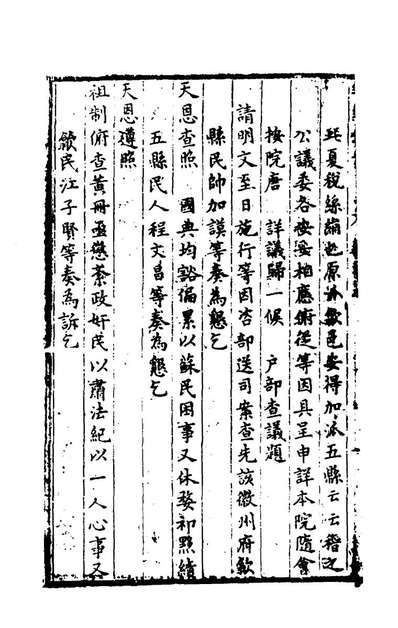 此夏稅絲絹也原於歙邑安得加派五縣云云稽之
公議委各按妥相應術從等因具呈申詳本院隨會
按院唐　詳議歸一候　戶部查議題
請明文至日施行等因咨部送司案查先該徽州府歙
縣民帥加謨等奏為懇乞
天恩查照　國典均豁偏累以蘇民困事又休婺祁黟績
五縣民人程文昌等奏為懇乞
天恩遵照
祖制俯查黃冊亟懲紊政奸民以肅法紀以一人心事又
歙民江子賢等奏為訴乞